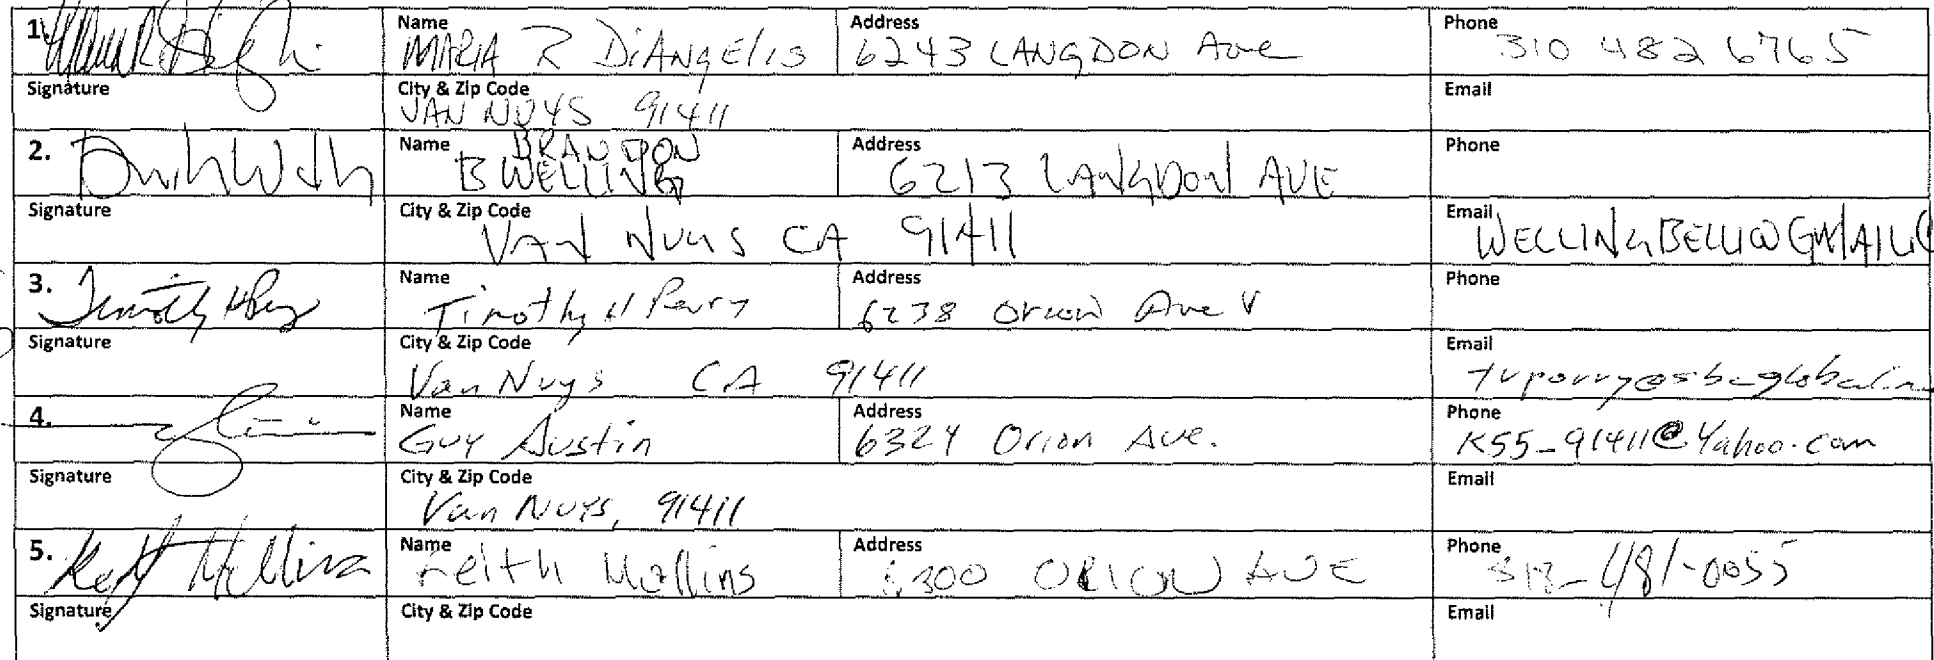 1. Name MARIA R DiANgElis Address 6243 LANGDON Ave Phone 310 482 6765
Signature City & Zip Code VAN NUYS 91411 Email
2. Name BRANDON B WELLING Address 6213 LANGDON AVE Phone
Signature City & Zip Code VAN NUYS CA 91411 Email
3. Name Timothy H Perry Address 6238 Orion Ave Phone
Signature City & Zip Code Van Nuys CA 91411 Email
4. Name Guy Austin Address 6324 Orion Ave. Phone K55_91411@Yahoo.com
Signature City & Zip Code Van Nuys, 91411 Email
5. Name Keith Mullins Address 6300 ORION AVE Phone 818-481-0055
Signature City & Zip Code Email